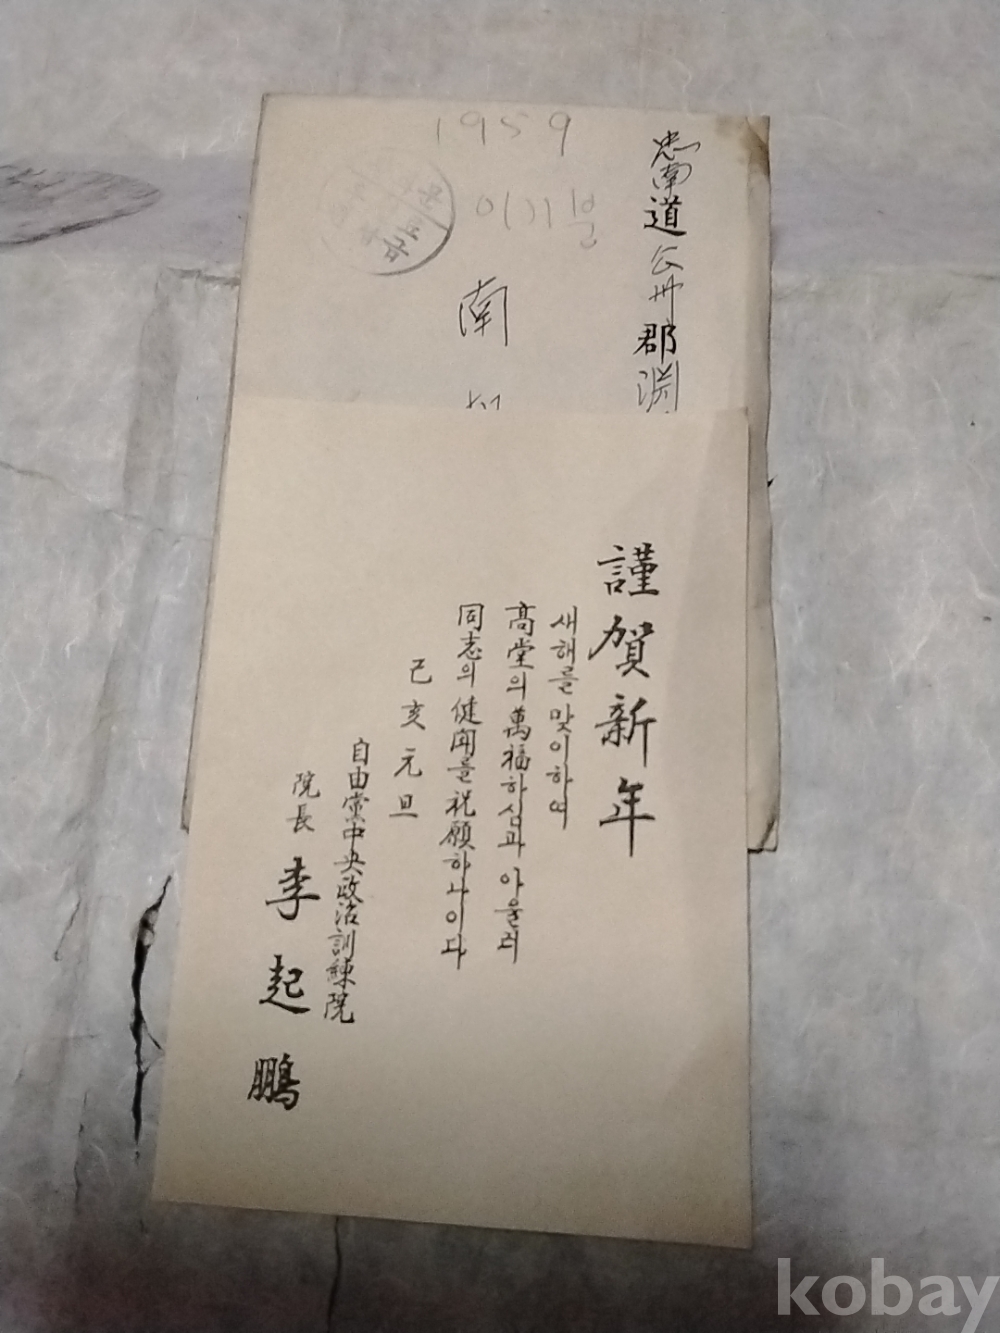 1959
이기붕
忠南道公州郡淵
南
謹賀新年
새해를맞이하여
高堂의萬福하심과아울러
同志의健鬪를祝願하나이다
己亥元旦
自由黨中央政治訓練院
院長 李起鵬
kobay